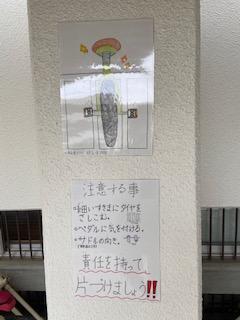 注意する事
•細いすきまにタイヤを
さしこむ。
•ペダルに気を付ける。
•サドルの向き。
責任を持って
片づけましょう!!